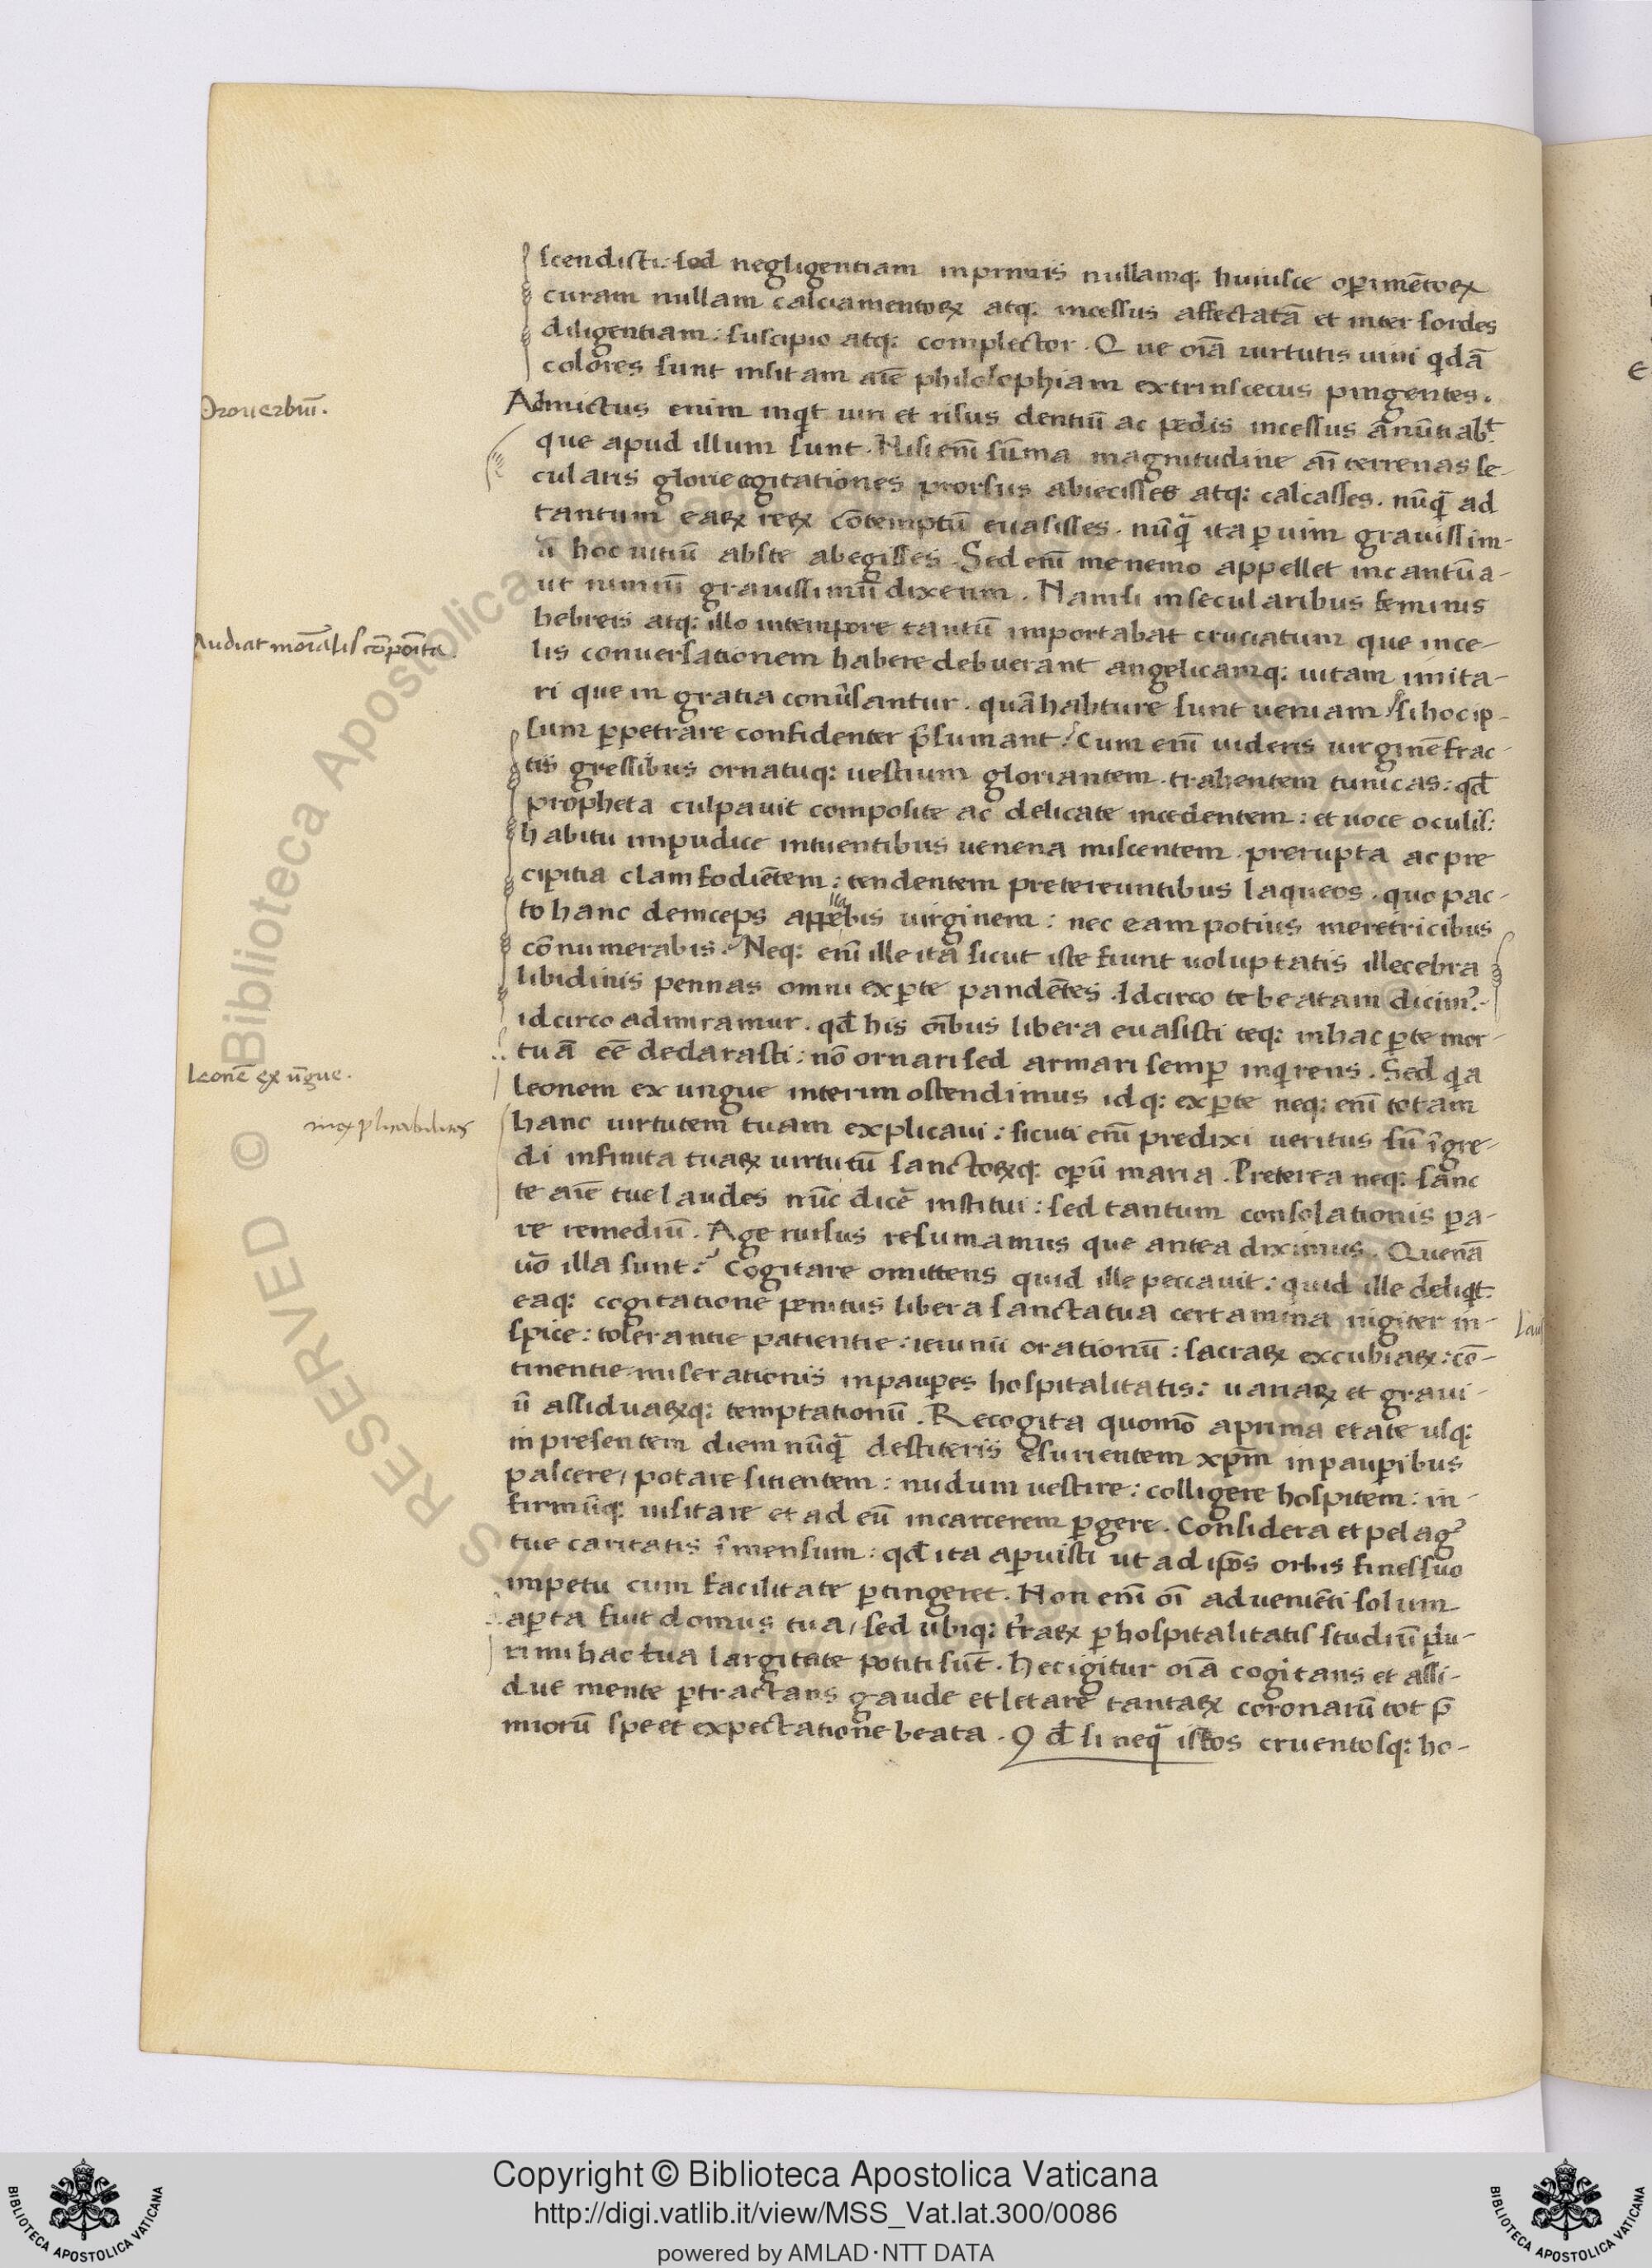 scendisti: sed negligentiam inprimis nullamq: huiusce operimētoꝝ
curam nullam calciamentoꝝ atq: incessus affectatā et inter sordes
diligentiam: suscipio atq: complector. Que oīa uirtutis uiui qdā
colores sunt insitam aīe philosophiam extrinsecus pingentes.
Prouerbiū.
Amictus enim inqt uiri et risus dentiū ac pedis incessus anūtiabt
que apud illum sunt. Nisi enī sūma magnitudine aī terrenas se-
cularis glorie cogitationes prorsus abiecisses atq: calcasses. nūq̄ ad
tantum eaꝝ reꝝ cōtemptū euasisses. nūq̄ ita ꝑ uim grauissim-
ū hoc uitiū abste abegisses. Sed enī me nemo appellet incantū a-
ut nimiū grauissimū dixerim. Nam si in secularibus feminis
hebreis atq: illo intempore tantū importabat cruciatum que ince-
Audiat
lis conuersationem habere debuerant angelicamq: uitam imita-
ri que in gratia conūsantur. quā habture sunt ueniam si hoc ip-
sum ꝑpetrare confidenter p̄sumant? Cum enī uideris uirginē frac-
tis gressibus ornatuq: uestium gloriantem. trahentem tunicas: qd̄
propheta culpauit composite ac delicate incedentem: et uoce oculis:
habitu impudice intuentibus uenena miscentem. prerupta ac pre
cipitia clam fodiētem: tendentem pretereuntibus laqueos. quo pac-
to hanc deinceps appellabis uirginem: nec eam potius meretricibus
cōnumerabis? Neq: enī ille ita sicut iste fiunt uoluptatis illecebra
libidinis pennas omni ex ꝑte pandētes. Idcirco te beatam dicim⁹.
idcirco admiramur. qd̄ his oībus libera euasisti teq: in hac ꝑte mor-
tuā eē declarasti: nō ornari sed armari semꝑ inqrens. Sed qa
leonē ex ūgue.
leonem ex ungue interim ostendimus idq: ex ꝑte neq: enī totam
inexplicabilitas
hanc uirtutem tuam explicaui: sicuti enī predixi ueritus sū īgre-
di infinita tuaꝝ uirtutū sanctoꝝq: oꝑū maria. Preterea neq: sanc
te aīe tue laudes nūc dicē institui: sed tantum consolationis ꝑa-
re remediū. Age rursus resumamus que antea diximus. Quenā
ūo illa sunt? Cogitare omittens quid ille peccauit: quid ille deliqt
eaq: cogitatione penitus libera sancta tua certamina iugiter in-
spice: tolerantie patientie: ieiunii orationū: sacraꝝ excubiaꝝ: cō-
tinentie miserationis in pauꝑes hospitalitatis: uariaꝝ et graui-
ū assiduaꝝq: temptationū. Recogita quomō a prima etate usq:
in presentem diem nūq̄ destiteris esurientem xp̄m in pauꝑibus
pascere, potare sitientem: nudum uestire: colligere hospitem: in-
firmūq: uisitare et ad eū incarcerem ꝑgere. Considera et pelag⁹
tue caritatis īmensum: qd̄ ita aꝑuisti ut ad ip̄os orbis fines suo
impetu cum facilitate ꝑtingeret. Non enī oī aduenīeti solum
aꝑta fuit domus tua, sed ubiq: t̄raꝝ ꝑ hospitalitatis studiū plu-
rimi hac tua largitate potiti sūt. Hec igitur oīa cogitans et assi-
due mente ꝑtractans gaude et letare tantaꝝ coronarū tot p̄
miorū spe et expectatione beata. Qd̄ si neq̄ istos cruentosq: ho-
© Biblioteca Apostolica Vaticana
RESERVED
Copyright © Biblioteca Apostolica Vaticana
http://digi.vatlib.it/view/MSS_Vat.lat.300/0086
powered by AMLAD·NTT DATA
BIBLIOTECA APOSTOLICA VATICANA
BIBLIOTECA APOSTOLICA VATICANA